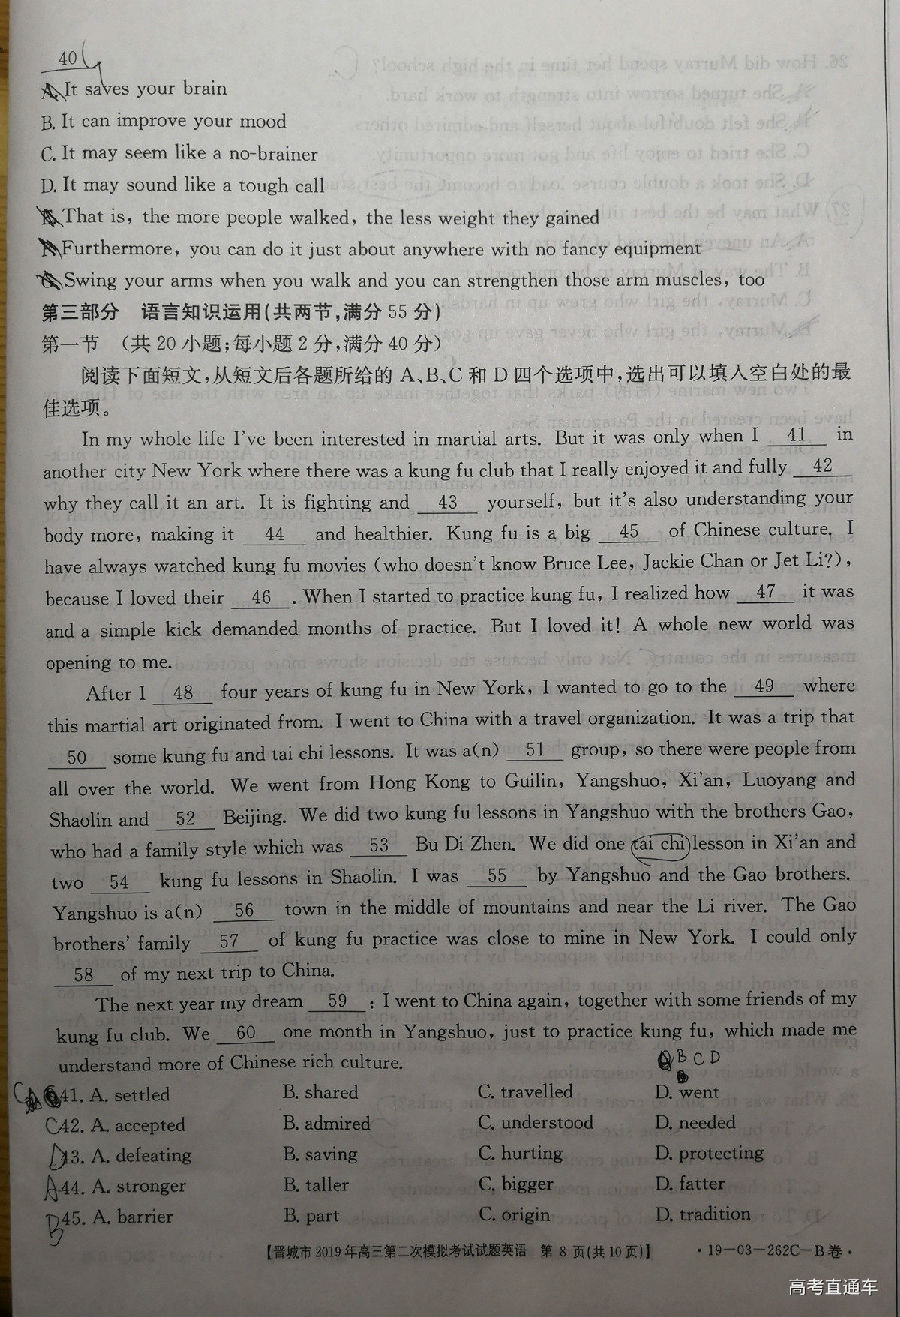 40
A. It saves your brain
B. It can improve your mood
C. It may seem like a no-brainer
D. It may sound like a tough call
E. That is, the more people walked, the less weight they gained
F. Furthermore, you can do it just about anywhere with no fancy equipment
G. Swing your arms when you walk and you can strengthen those arm muscles, too
第三部分 语言知识运用(共两节,满分 55 分)
第一节 (共 20 小题;每小题 2 分,满分 40 分)
阅读下面短文,从短文后各题所给的 A、B、C 和 D 四个选项中,选出可以填入空白处的最
佳选项。
In my whole life I've been interested in martial arts. But it was only when I 41 in
another city New York where there was a kung fu club that I really enjoyed it and fully 42
why they call it an art. It is fighting and 43 yourself, but it's also understanding your
body more, making it 44 and healthier. Kung fu is a big 45 of Chinese culture. I
have always watched kung fu movies (who doesn't know Bruce Lee, Jackie Chan or Jet Li?),
because I loved their 46 . When I started to practice kung fu, I realized how 47 it was
and a simple kick demanded months of practice. But I loved it! A whole new world was
opening to me.
After I 48 four years of kung fu in New York, I wanted to go to the 49 where
this martial art originated from. I went to China with a travel organization. It was a trip that
50 some kung fu and tai chi lessons. It was a(n) 51 group, so there were people from
all over the world. We went from Hong Kong to Guilin, Yangshuo, Xi'an, Luoyang and
Shaolin and 52 Beijing. We did two kung fu lessons in Yangshuo with the brothers Gao,
who had a family style which was 53 Bu Di Zhen. We did one tai chi lesson in Xi'an and
two 54 kung fu lessons in Shaolin. I was 55 by Yangshuo and the Gao brothers.
Yangshuo is a(n) 56 town in the middle of mountains and near the Li river. The Gao
brothers' family 57 of kung fu practice was close to mine in New York. I could only
58 of my next trip to China.
The next year my dream 59 : I went to China again, together with some friends of my
kung fu club. We 60 one month in Yangshuo, just to practice kung fu, which made me
understand more of Chinese rich culture.
B C D
41. A. settled B. shared C. travelled D. went
C 42. A. accepted B. admired C. understood D. needed
D 43. A. defeating B. saving C. hurting D. protecting
A 44. A. stronger B. taller C. bigger D. fatter
B 45. A. barrier B. part C. origin D. tradition
【晋城市 2019 年高三第二次模拟考试试题英语 第 8 页(共 10 页)】 ·19-03-262C-B卷·
高考直通车